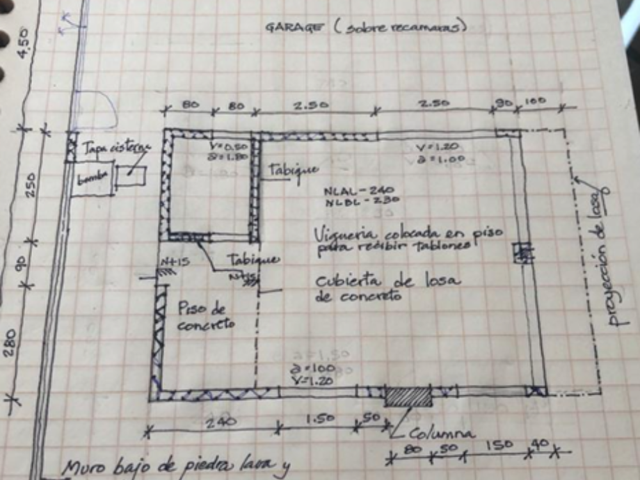 GARAGE (sobre recamaras)
4,50
80 80 2.50 2.50 90 100
Tapa cisterna
bomba
V=0.50
a=1.80
V=1.20
a=1.00
Tabique
250
NLAL-240
NLBL-230
Vigueria colocada en piso
para recibir tablones
proyección de losa
N+15
Tabique
N+15
90
Cubierta de losa
de concreto
Piso de
concreto
280
a=100
V=1.20
240 1.50 50
Columna
80 50 150 40
Muro bajo de piedra lava y